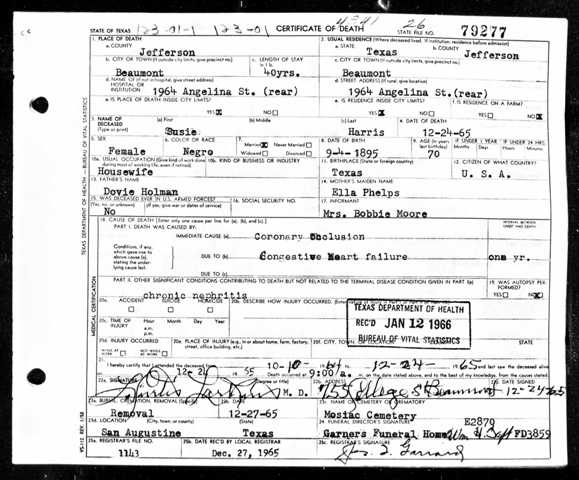 STATE OF TEXAS
CERTIFICATE OF DEATH
STATE FILE NO. 79277
1. PLACE OF DEATH
a. COUNTY
Jefferson
2. USUAL RESIDENCE (Where deceased lived. If institution: residence before admission)
a. STATE
Texas
b. COUNTY
Jefferson
b. CITY OR TOWN (If outside city limits, give precinct no.)
Beaumont
c. LENGTH OF STAY
40yrs.
c. CITY OR TOWN (If outside city limits, give precinct no.)
Beaumont
d. NAME OF (If not in hospital, give street address)
HOSPITAL OR
INSTITUTION
1964 Angelina St.(rear)
d. STREET ADDRESS (If rural, give location)
1964 Angelina St.(rear)
e. IS PLACE OF DEATH INSIDE CITY LIMITS?
YES NO
e. IS RESIDENCE INSIDE CITY LIMITS?
YES NO
f. IS RESIDENCE ON A FARM?
YES NO
3. NAME OF DECEASED
(Type or print)
(a) First
Susie
(b) Middle
(c) Last
Harris
4. DATE OF DEATH
12-24-65
5. SEX
Female
6. COLOR OR RACE
Negro
7. Married Never Married
Widowed Divorced
8. DATE OF BIRTH
9-4-1895
9. AGE (In years last birthday)
70
IF UNDER 1 YEAR
Months Days
IF UNDER 24 HRS.
Hours Min.
10a. USUAL OCCUPATION (Give kind of work done during most of working life, even if retired)
Housewife
10b. KIND OF BUSINESS OR INDUSTRY
11. BIRTHPLACE (State or foreign country)
Texas
12. CITIZEN OF WHAT COUNTRY?
U. S. A.
13. FATHER'S NAME
Dovie Holman
14. MOTHER'S MAIDEN NAME
Ella Phelps
15. WAS DECEASED EVER IN U.S. ARMED FORCES?
(Yes, no, or unknown) (If yes, give war or dates of service)
No
16. SOCIAL SECURITY NO.
17. INFORMANT
Mrs. Bobbie Moore
18. CAUSE OF DEATH (Enter only one cause per line for (a), (b), and (c).)
PART I. DEATH WAS CAUSED BY:
IMMEDIATE CAUSE (a) Coronary Occlusion
INTERVAL BETWEEN ONSET AND DEATH
Conditions, if any, which gave rise to above cause (a), stating the underlying cause last.
DUE TO (b) Congestive Heart failure one yr.
DUE TO (c)
PART II. OTHER SIGNIFICANT CONDITIONS CONTRIBUTING TO DEATH BUT NOT RELATED TO THE TERMINAL DISEASE CONDITION GIVEN IN PART I(a)
chronic nephritis
19. WAS AUTOPSY PERFORMED?
YES NO
20a. ACCIDENT SUICIDE HOMICIDE
20b. DESCRIBE HOW INJURY OCCURRED.
20c. TIME OF INJURY
Hour Month Day Year
a.m.
p.m.
TEXAS DEPARTMENT OF HEALTH
REC'D JAN 12 1966
BUREAU OF VITAL STATISTICS
20d. INJURY OCCURRED
20e. PLACE OF INJURY (e.g., in or about home, farm, factory, street, office building, etc.)
20f. CITY, TOWN,
21. I hereby certify that I attended the deceased
10-10- 64 12-24- 65
Death occurred at 9:00a. m. on the date stated above, and to the best of my knowledge, from the causes stated.
22a. SIGNATURE
(Degree or title)
M. D.
22b. ADDRESS
Beaumont
22c. DATE SIGNED
12-24-65
23a. BURIAL, CREMATION, REMOVAL
Removal
23b. DATE
12-27-65
23c. NAME OF CEMETERY OR CREMATORY
Mosiac Cemetery
23d. LOCATION (City, town, or county) (State)
San Augustine Texas
24. FUNERAL DIRECTOR'S SIGNATURE
E2879
Garners Funeral Home FD3859
25a. REGISTRAR'S FILE NO.
1143
25b. DATE REC'D BY LOCAL REGISTRAR
Dec. 27, 1965
25c. REGISTRAR'S SIGNATURE
TEXAS DEPARTMENT OF HEALTH — BUREAU OF VITAL STATISTICS
MEDICAL CERTIFICATION